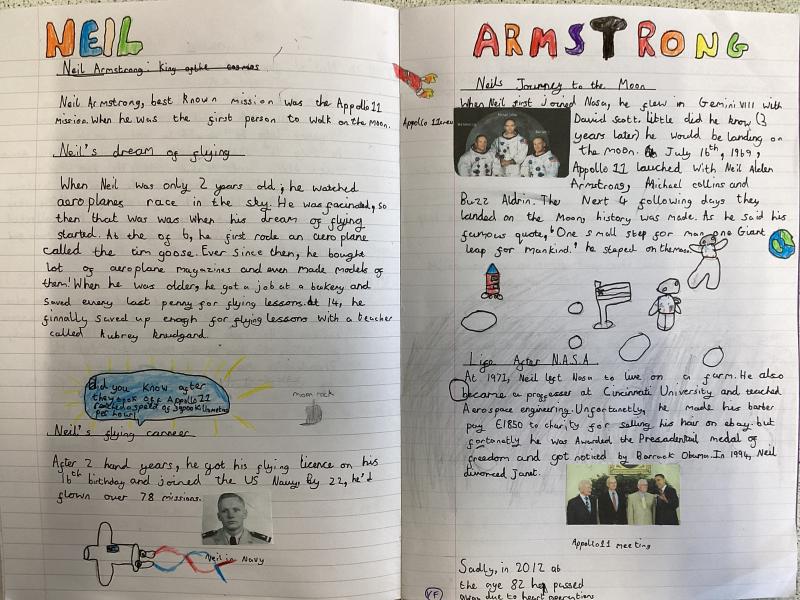 NEIL
Neil Armstrong: King of the cosmos
Neil Armstrong, best known mission was the Appolo 11
mission. When he was the first person to walk on the Moon.
Neil's dream of flying
When Neil was only 2 years old; he watched
aeroplanes race in the sky. He was facinated, so
then that was when his dream of flying
started. At the of 6, he first rode an aeroplane
called the tin goose. Ever since then, he bought
lot of aeroplane magazines and even made models of
them! When he was older, he got a job at a bakery and
saved every last penny for flying lessons. At 14, he
finnally saved up enogh for flying lessons with a teacher
called Aubrey knudgard.
did you know after
they took off Appollo 11
reached a speed of
per hour
moon rock
Neil's flying carreer
After 2 hard years, he got his flying licence on his
16th birthday and joined the US Navy. By 22, he'd
flown over 78 missions.
Neil in Navy
ARMSTRONG
Neils Journey to the Moon
When Neil first joined Nasa, he flew in Gemini VIII with
David Scott. little did he know (3
years later) he would be landing on
the moon. July 16th, 1969,
Appolo 11 lauched with Neil Alden
Armstrong, Michael collins and
Appollo 11 crew
Buzz Aldrin. The Next 4 following days they
landed on the Moon; history was made. As he said his
famous quote, 'One small step for man, one Giant
leap for mankind.' he steped on the moon.
Life After N.A.S.A
At 1971, Neil left Nasa to live on a farm. He also
became a professer at Cincinnati University and teached
Aerospace engineering. Unfortanetly, he made his barber
pay £1850 to charity for selling his hair on ebay. but
fortanetly he was Awarded the Presadential medal of
freedom and got noticed by Barrack Obama. In 1994, Neil
divorced Janet.
Appollo 11 meeting
Sadly, in 2012 at
the age 82 he passed
away due to heart operations
YF